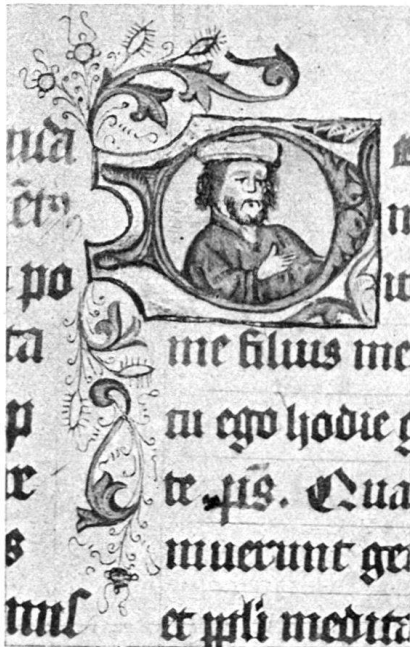 po
ta
p
s
D
me filius me
tu ego hodie g
te. ps̄. Qua
muerunt gen
et ppli medita